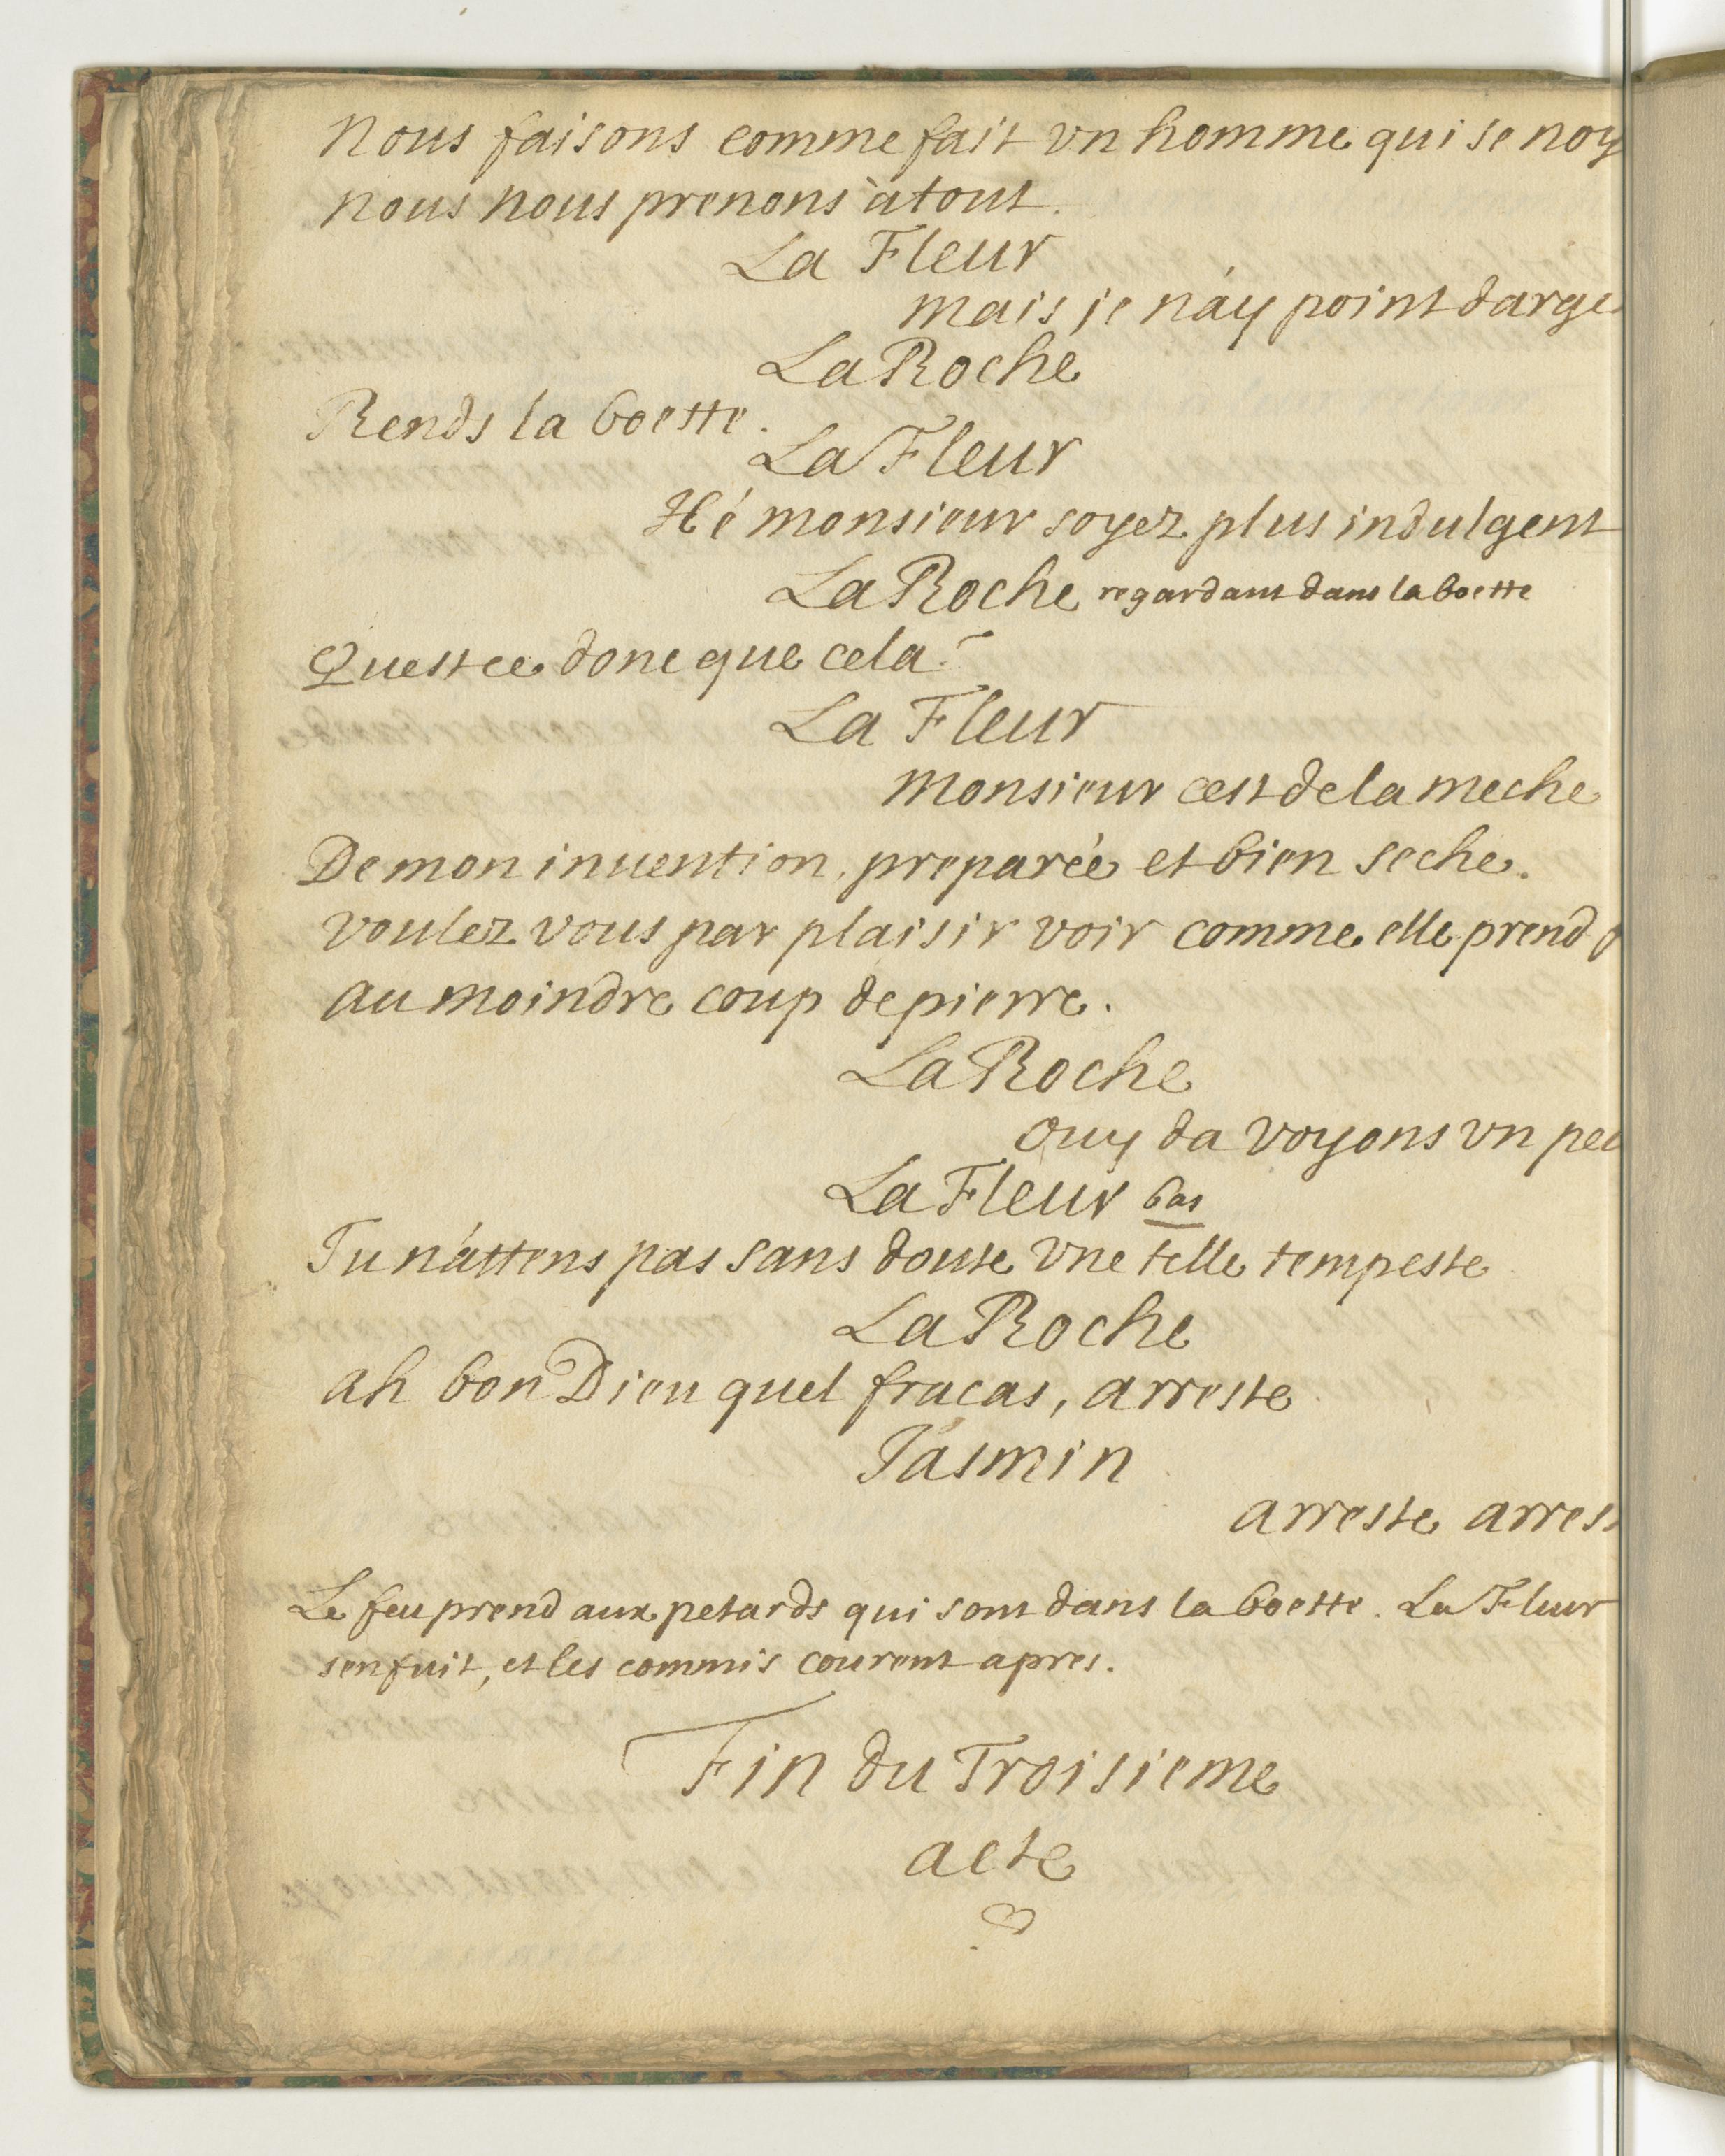 Nous faisons comme fait vn homme qui se noy
nous nous prenons àtout.
La Fleur
mais je n'ay point darge
La Roche
Rends la boette.
La Fleur
Hé monsieur soyez plus indulgent
La Roche regardant dans la boette
Questce donc que cela?
La Fleur
Monsieur cest de la meche
De mon inuention, preparée et bien seche.
voulez vous par plaisir voir comme elle prend
au moindre coup de pierre.
La Roche
ouy da voyons vn peu
La Fleur bas
Tu n'attens pas sans doute vne telle tempeste
La Roche
ah bon Dieu quel fracas, arreste
Jasmin
arreste arres
Le feu prend aux petards qui sont dans la boette. La Fleur
senfuit, et les commis courent apres.
Fin du Troisieme
acte